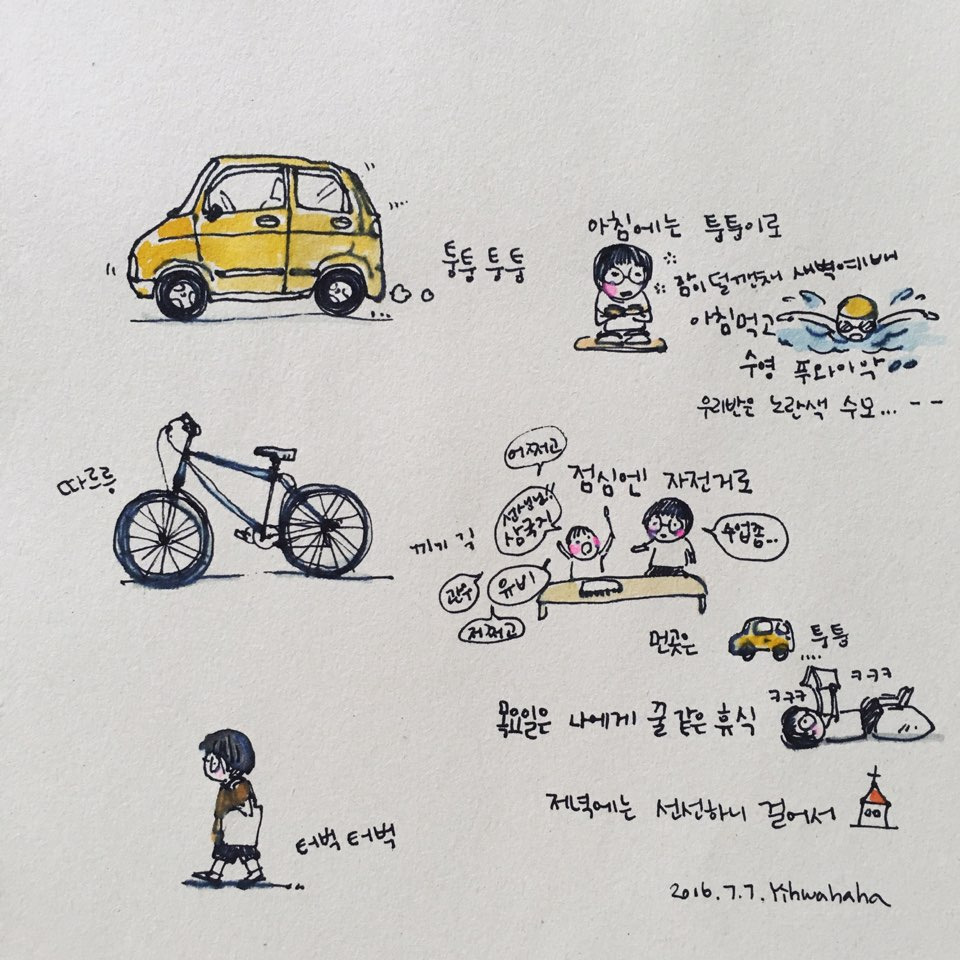 퉁퉁 퉁퉁
아침에는 퉁퉁이로
잠이 덜깬채 새벽예배
아침먹고
수영 푸와아악
우리반은 노란색 수모...
따르릉
끼기 긱
점심엔 자전거로
어쩌고
선생님!!
삼국지
관우
유비
저쩌고
수업중...
먼곳은
퉁퉁
목요일은 나에게 꿀같은 휴식
ㅋㅋㅋ
ㅋㅋㅋ
터벅 터벅
저녁에는 선선하니 걸어서
2016.7.7. Yihwahaha